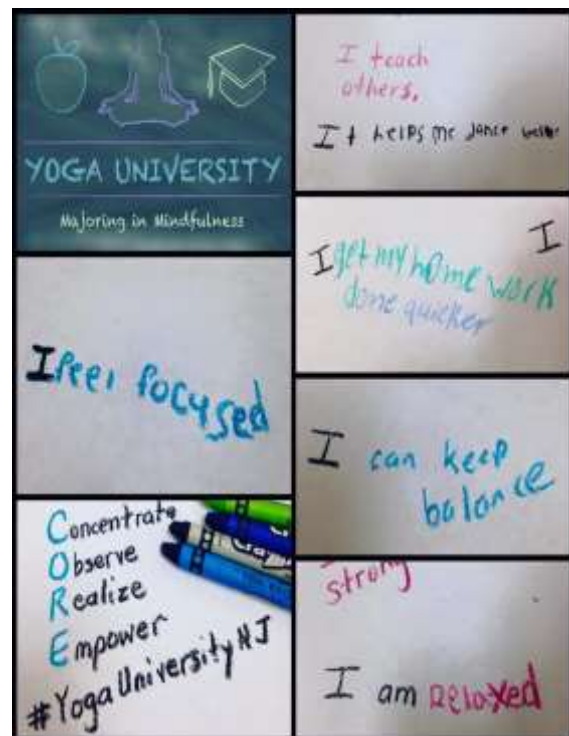 YOGA UNIVERSITY
Majoring in Mindfulness
I feel focused
Concentrate
Observe
Realize
Empower
#YogaUniversityNJ
I teach
others.
It helps me dance
I
I get my home work
done quicker
I can keep
balance
strong
I am Relaxed